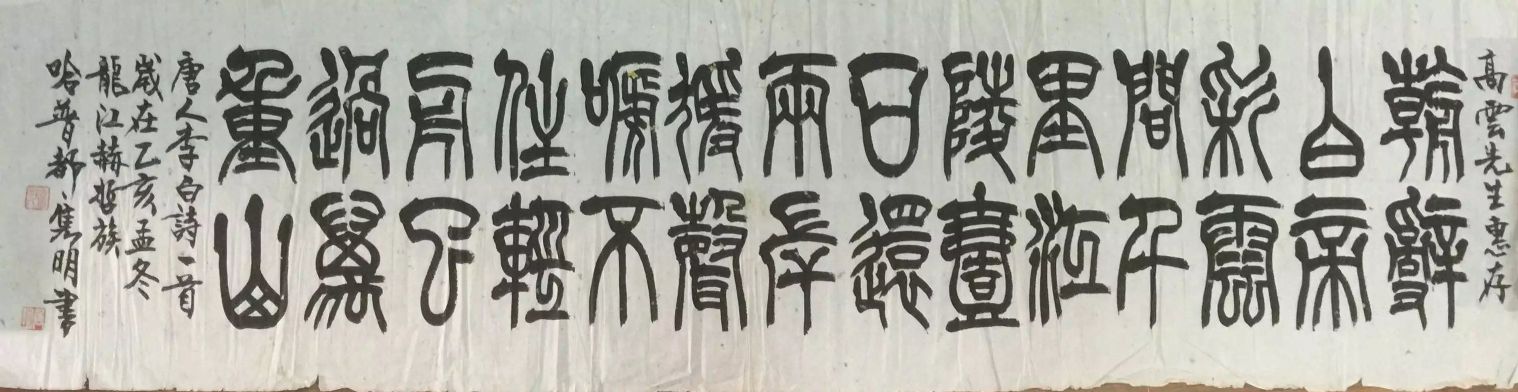 高雲先生惠存
朝辭
白帝
彩雲
間千
里江
陵壹
日還
兩岸
猨聲
嗁不
住輕
舟已
過萬
重山
唐人李白詩一首
歲在乙亥孟冬
龍江赫哲族
哈普都隽明書